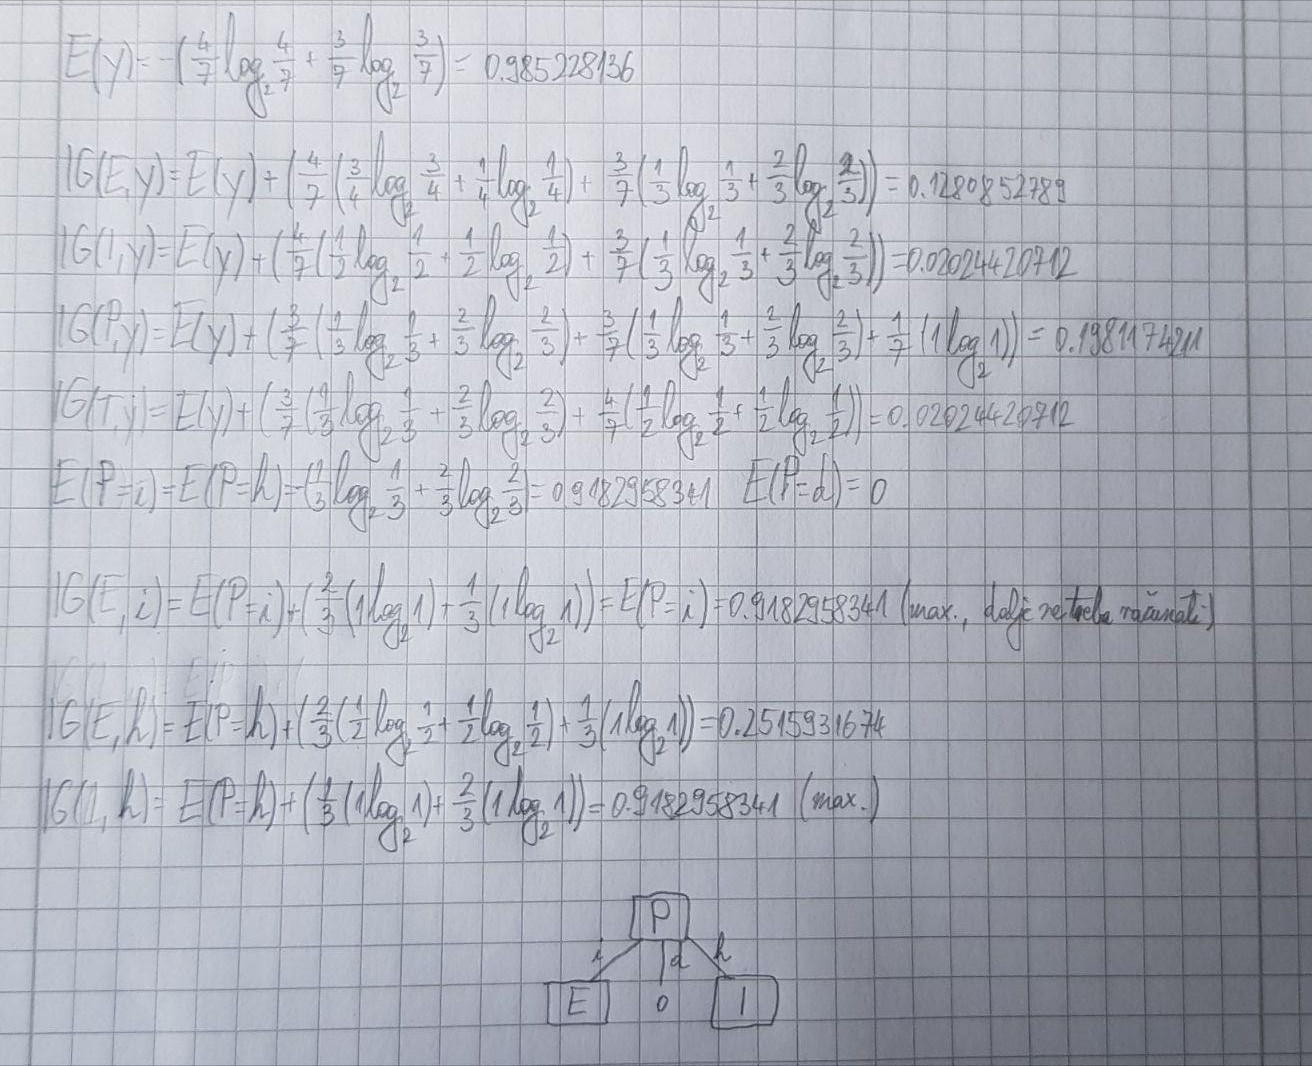 E(y)=-(4/7 log₂ 4/7 + 3/7 log₂ 3/7)= 0.985228136
IG(E,y)=E(y)+(4/7(3/4 log₂ 3/4 + 1/4 log₂ 1/4)+ 3/7(1/3 log₂ 1/3 + 2/3 log₂ 2/3))=0.1280852789
IG(I,y)=E(y)+(4/7(1/2 log₂ 1/2 + 1/2 log₂ 1/2)+ 3/7(1/3 log₂ 1/3 + 2/3 log₂ 2/3))=0.02024420712
IG(P,y)=E(y)+(3/7(1/3 log₂ 1/3 + 2/3 log₂ 2/3)+ 3/7(1/3 log₂ 1/3 + 2/3 log₂ 2/3)+ 1/7(1log₂1))= 0.1981174211
IG(T,y)=E(y)+(3/7(1/3 log₂ 1/3 + 2/3 log₂ 2/3)+ 4/7(1/2 log₂ 1/2 + 1/2 log₂ 1/2))=0.02024420712
E(P=i)=E(P=h)=-(1/3 log₂ 1/3 + 2/3 log₂ 2/3)=0.9182958341 E(P=d)=0
IG(E,i)=E(P=i)+(2/3(1log₂1)+ 1/3(1log₂1))=E(P=i)=0.9182958341 (max., dalje ne treba računati)
IG(E,h)=E(P=h)+(2/3(1/2 log₂ 1/2 + 1/2 log₂ 1/2)+ 1/3(1log₂1))=0.2515931674
IG(I,h)= E(P=h)+(1/3(1log₂1)+ 2/3(1log₂1))=0.9182958341 (max.)
P
i d h
E 0 I